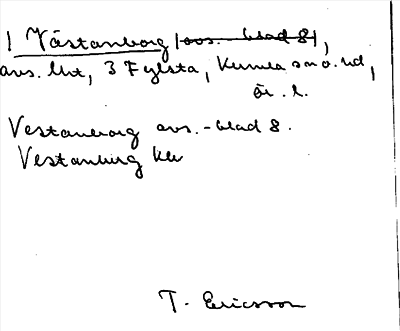 1 Västanborg (avs. blad 8),
avs. lht, 3 Fylsta, Kumla sn o. hd,
Ör. l.
Vestanborg avs. - blad 8.
Vestanburg kb
T. Ericsson